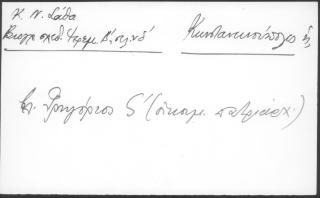 Κ. Ν. Σάθα
Βιογρ. σχεδ. Ιερεμ. Β', σελ. νδ' Κωνσταντινούπολις
Γρηγόριος Ϛ' (οικουμ. πατριάρχ.)